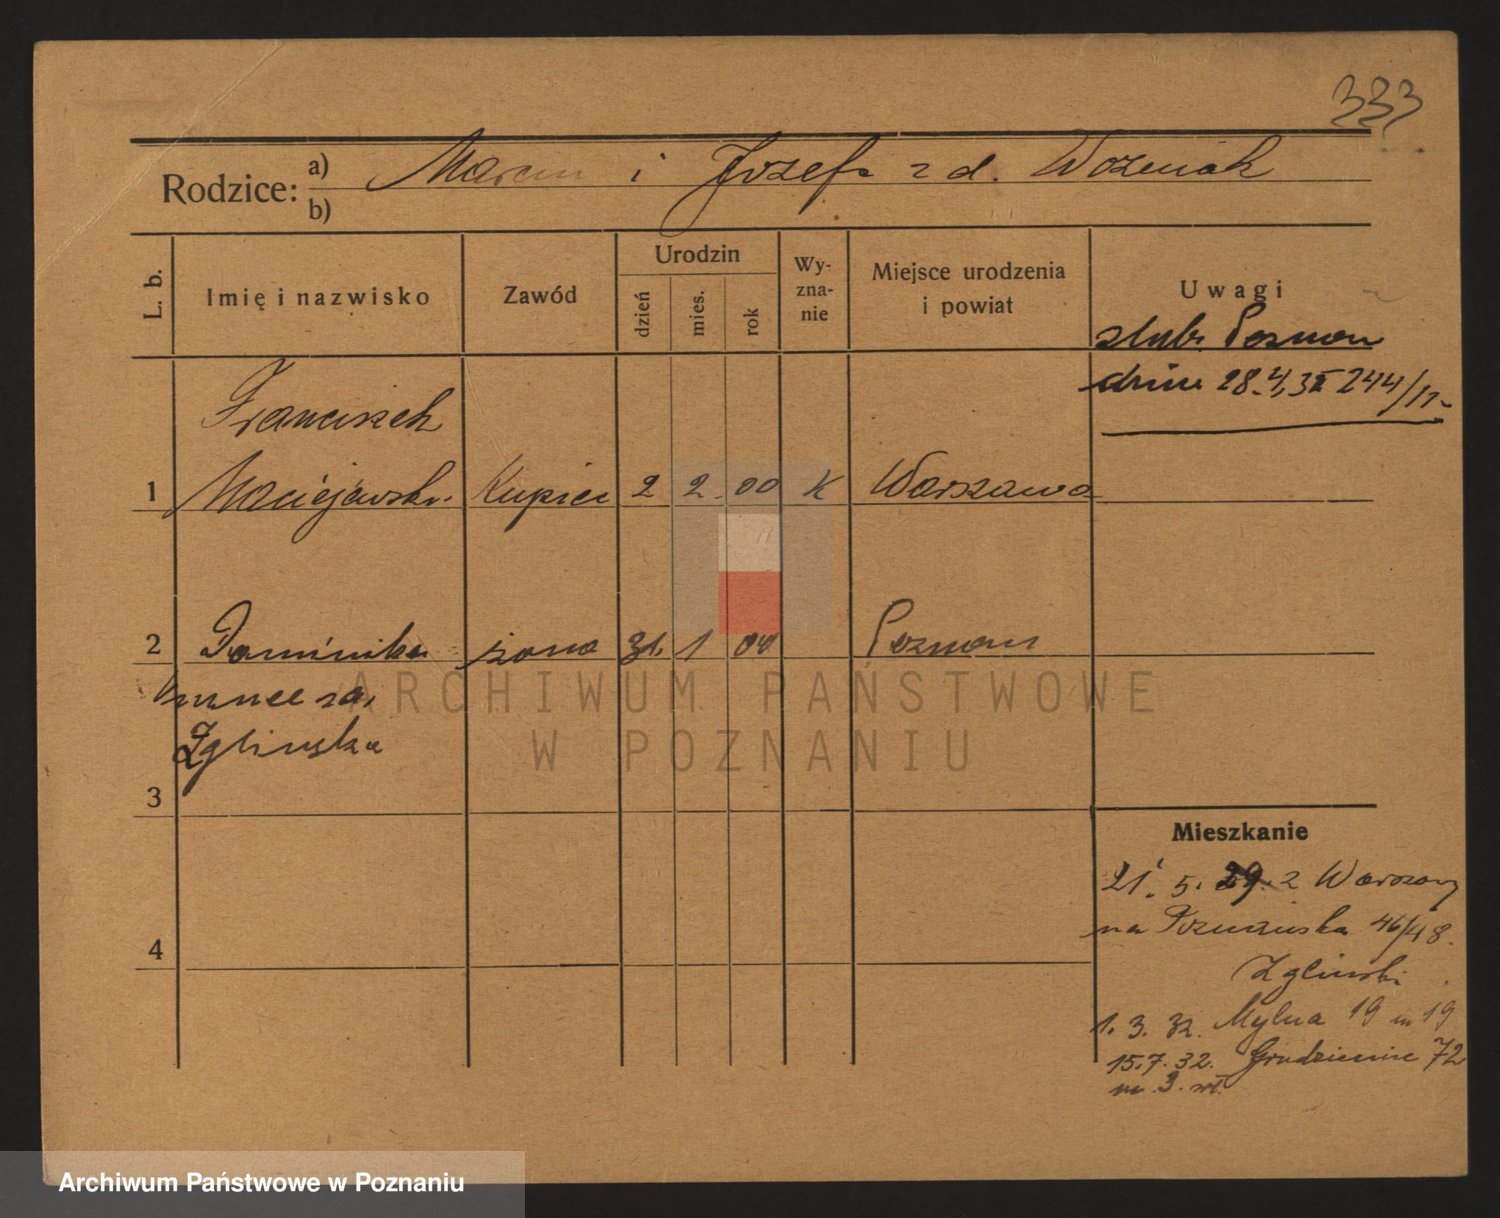 333
Rodzice: a) Marcin i Józefa z d. Woźniak
b)
L. b.
Imię i nazwisko
Zawód
Urodzin
dzień
mies.
rok
Wy-
zna-
nie
Miejsce urodzenia
i powiat
Uwagi
ślub Poznan
dnia 28.4.32 244/II
Franciszek
1 Maciejewski Kupiec 2 2. 00 K Warszawa
2 Dominika żona 31. 1 04 Poznan
Zglinska
3
4
ARCHIWUM PAŃSTWOWE
W POZNANIU
Mieszkanie
21. 5. 29. z Warszawy
na Poznańska 46/48.
Zglinski
1. 3. 32. Mylna 19 m 19
15.7.32. Grudzieniec 72
m. 3. wł.
Archiwum Państwowe w Poznaniu